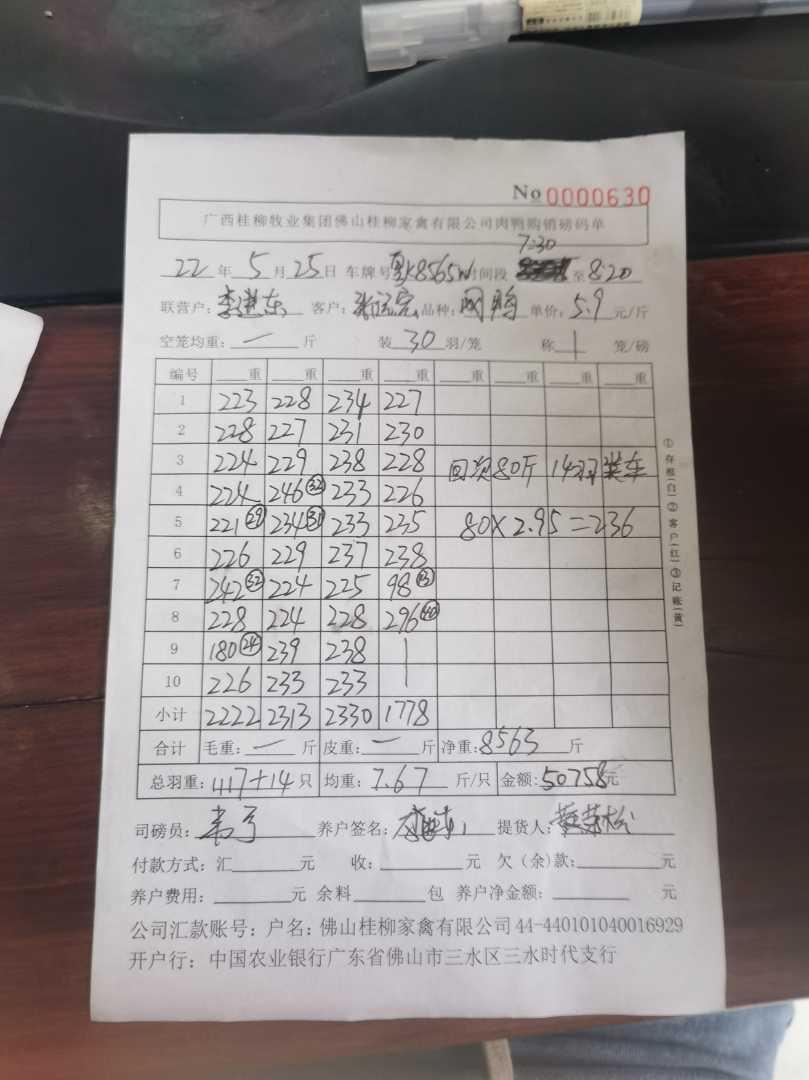 No 0000630
广西桂柳牧业集团佛山桂柳家禽有限公司肉鸭购销磅码单
7:30
22年5月25日 车牌号 K8565W 时间段 至8:20
联营户：李进东 客户： 品种： 鸭 单价：5.9元/斤
空笼均重：一斤 装30羽/笼 称1笼/磅
编号 重 重 重 重 重 重 重 重
1 223 228 234 227
2 228 227 231 230
3 224 229 238 228 回 80斤 14羽 装车
4 224 246(32) 233 226
5 221(29) 234(31) 233 235 80×2.95=236
6 226 229 237 238
7 242(32) 224 225 98(13)
8 228 224 228 296(40)
9 180(24) 239 238 |
10 226 233 233 |
小计 2222 2313 2330 1778
合计 毛重：一斤 皮重：一斤 净重：8563斤
总羽重：1117+14只 均重：7.67斤/只 金额：50758元
司磅员： 养户签名： 提货人：
付款方式：汇 元 收： 元 欠（余）款： 元
养户费用： 元 余料 包 养户净金额： 元
公司汇款账号：户名：佛山桂柳家禽有限公司44-440101040016929
开户行：中国农业银行广东省佛山市三水区三水时代支行
①存根(白)②客户(红)③记账(黄)